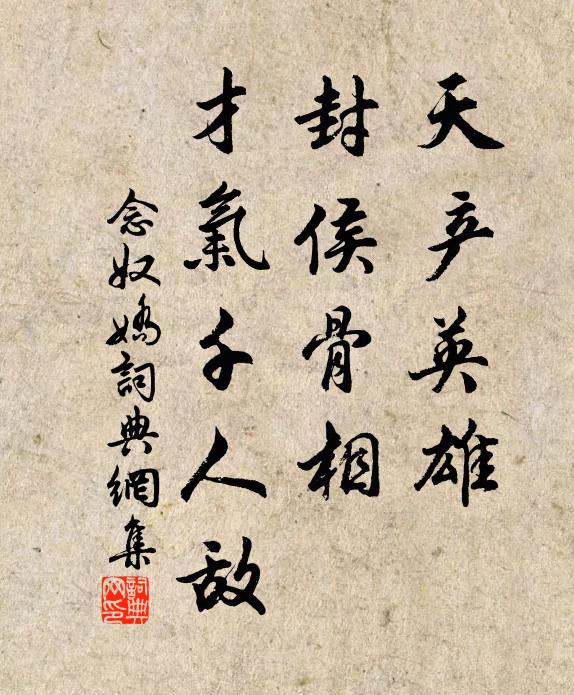 天产英雄
封侯骨相
才氣千人敌
念奴嬌詞典網集
詞典網印